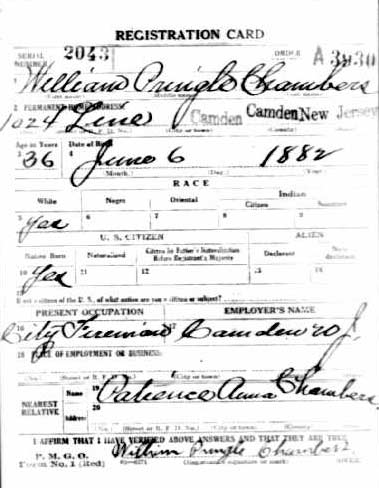 REGISTRATION CARD
SERIAL NUMBER 2043 ORDER A3930
1 William Pringle Chambers
2 PERMANENT HOME ADDRESS:
1024 Line Camden Camden New Jersey
(Street or R. F. D. No.) (City or town) (County) (State)
Age in Years Date of Birth
36 June 6 1882
(Month.) (Day.) (Year.)
RACE
White Negro Oriental Indian
Citizen Noncitizen
5 Yes 6 7 8 9
U. S. CITIZEN ALIEN
Native Born Naturalized Citizen by Father's Naturalization Before Registrant's Majority Declarant Non-declarant
10 Yes 11 12 13 14
15 If not a citizen of the U. S., of what nation are you a citizen or subject?
PRESENT OCCUPATION EMPLOYER'S NAME
City Fireman 17 Camden N J.
18 PLACE OF EMPLOYMENT OR BUSINESS:
(No.) (Street or R. F. D. No.) (City or town) (County) (State)
NEAREST RELATIVE Name 19 Patience Anna Chambers
Address 20
(No.) (Street or R. F. D. No.) (City or town) (County) (State)
I AFFIRM THAT I HAVE VERIFIED ABOVE ANSWERS AND THAT THEY ARE TRUE
P. M. G. O.
Form No. 1 (Red) William Pringle Chambers
(Registrant's signature or mark)